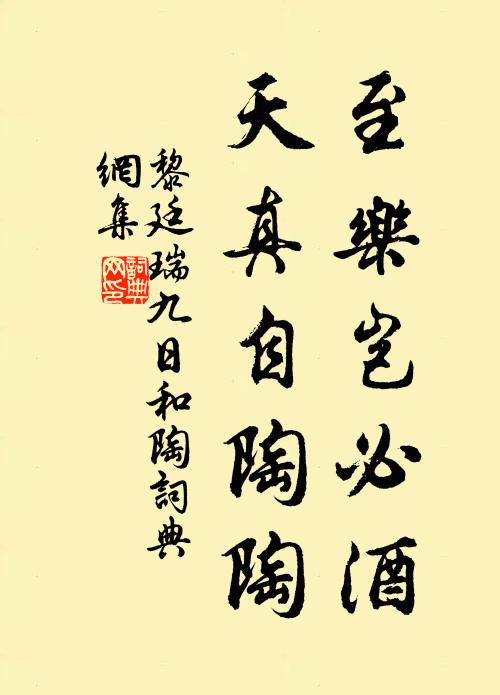 至樂豈必酒
天真自陶陶
黎廷瑞九日和陶詞典
網集
詞典
网印